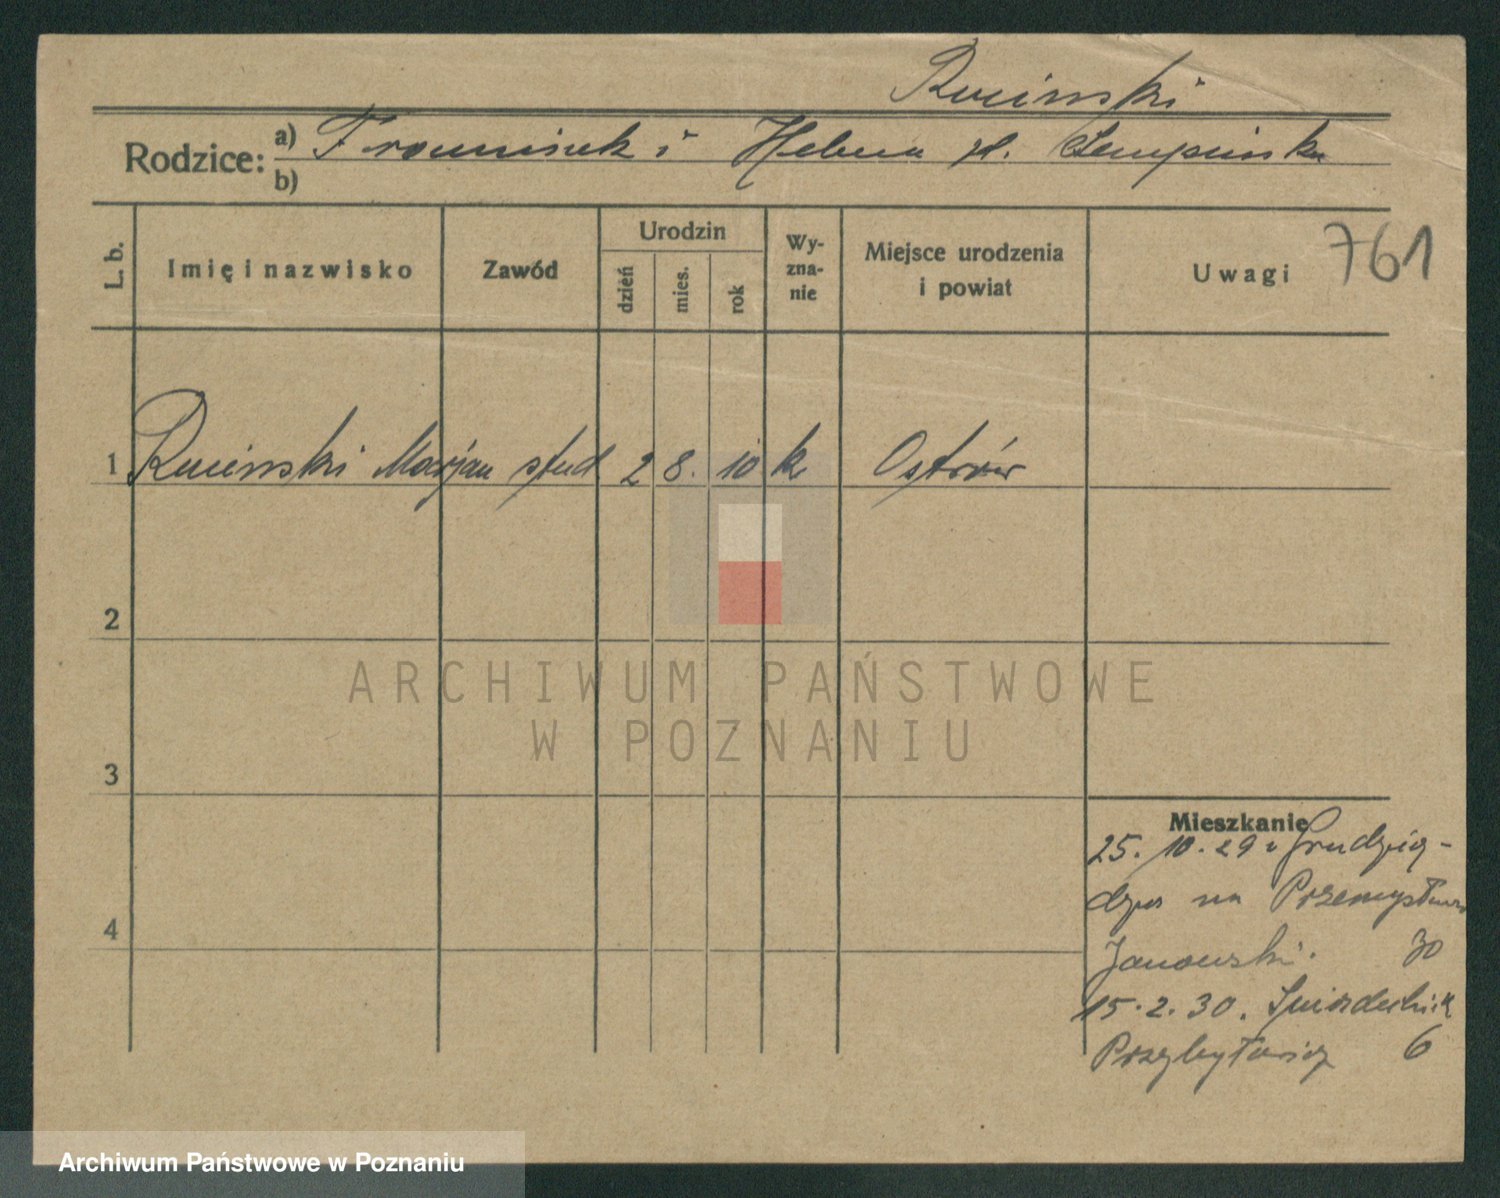 Rucinski
Rodzice: a) Franciszek i Helena zd. Szempińska
b)
L. b.
Imię i nazwisko
Zawód
Urodzin
dzień
mies.
rok
Wy-
zna-
nie
Miejsce urodzenia
i powiat
Uwagi
761
1 Rucinski Marjan stud. 2 8. 10 k Ostrów
2
3
4
Mieszkanie
25. 10. 29 z
na Przemysłowa
Janowski. 30
15. 2. 30.
Przybyłowicz 6
ARCHIWUM PAŃSTWOWE
W POZNANIU
Archiwum Państwowe w Poznaniu